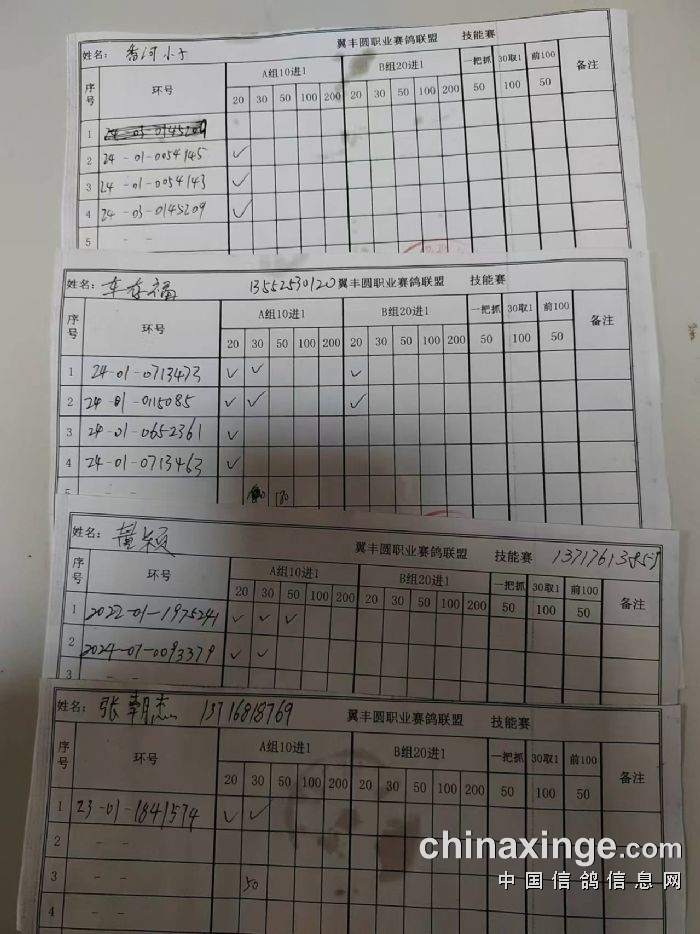 姓名: 香河小于 翼丰圆职业赛鸽联盟 技能赛
序号 环号 A组10进1 B组20进1 一把抓 30取1 前100 备注
20 30 50 100 200 20 30 50 100 200 50 100 50
1
2 24-01-0054145 ✓
3 24-01-0054143 ✓
4 24-03-0145209 ✓
5 - -
姓名: 车存福 13552530120 翼丰圆职业赛鸽联盟 技能赛
序号 环号 A组10进1 B组20进1 一把抓 30取1 前100 备注
20 30 50 100 200 20 30 50 100 200 50 100 50
1 24-01-0713473 ✓ ✓ ✓
2 24-01-0115085 ✓ ✓ ✓
3 24-01-0652361 ✓
4 24-01-0713463 ✓
5
姓名: 董颖 翼丰圆职业赛鸽联盟 技能赛
序号 环号 A组10进1 B组20进1 一把抓 30取1 前100 备注
20 30 50 100 200 20 30 50 100 200 50 100 50
1 2022-01-1975241 ✓ ✓ ✓
2 2024-01-0093379 ✓ ✓
3
姓名: 张朝杰 13716818769 翼丰圆职业赛鸽联盟 技能赛
序号 环号 A组10进1 B组20进1 一把抓 30取1 前100 备注
20 30 50 100 200 20 30 50 100 200 50 100 50
1 23-01-1841574 ✓ ✓
2 - -
3 - - 50
4 - -
chinaxinge.com
中国信鸽信息网